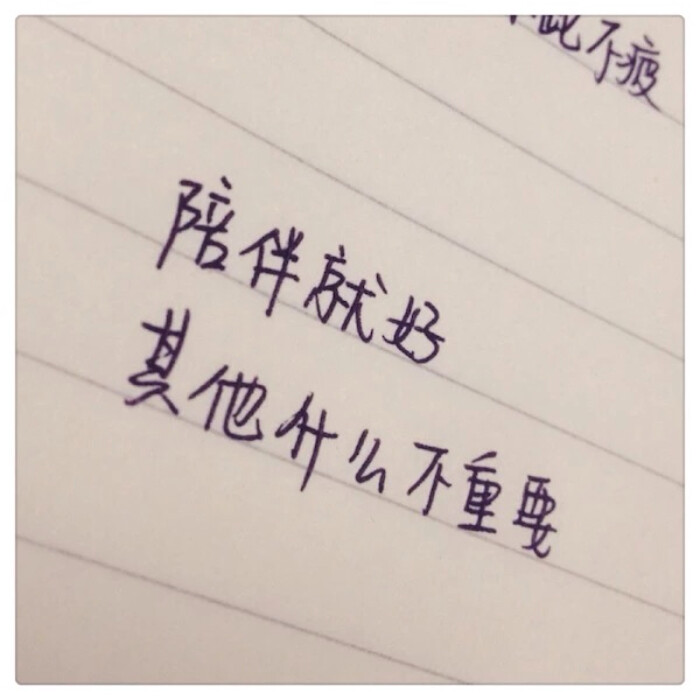 不疲
陪伴就好
其他什么不重要